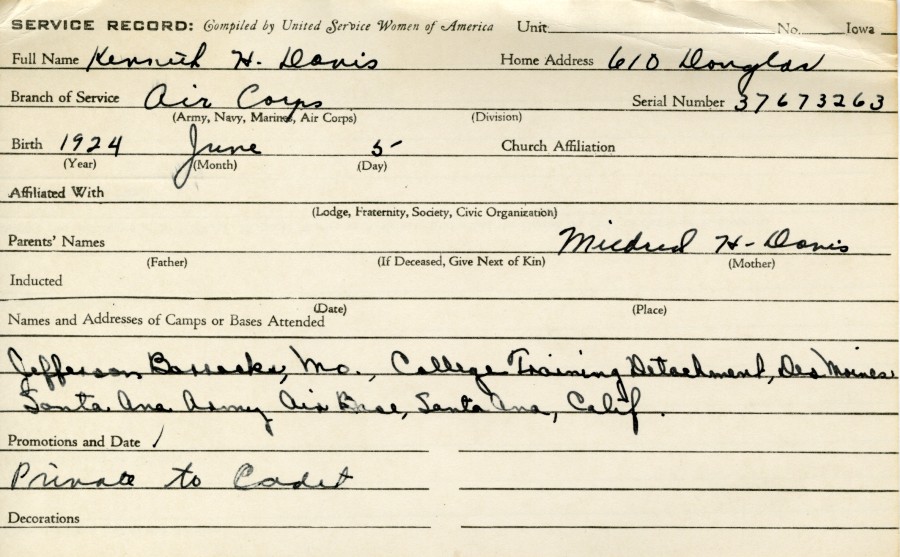 SERVICE RECORD: Compiled by United Service Women of America Unit No. Iowa
Full Name Kenneth H. Davis Home Address 610 Douglas
Branch of Service Air Corps Serial Number 37673263
(Army, Navy, Marines, Air Corps) (Division)
Birth 1924 June 5 Church Affiliation
(Year) (Month) (Day)
Affiliated With
(Lodge, Fraternity, Society, Civic Organization)
Parents' Names Mildred H. Davis
(Father) (If Deceased, Give Next of Kin) (Mother)
Inducted
(Date) (Place)
Names and Addresses of Camps or Bases Attended
Jefferson Barracks, Mo., College Training Detachment, Des Moines
Santa Ana Army Air Base, Santa Ana, Calif.
Promotions and Date
Private to Cadet
Decorations